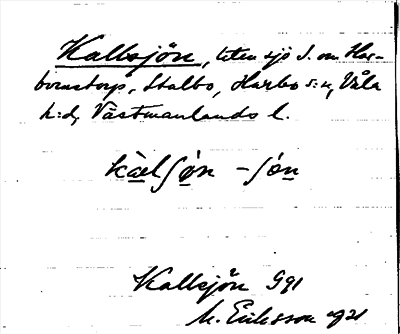 Kallsjön, liten sjö S. om Har-
bonstorp, Stalbo, Harbo s:n, Våla
h:d, Västmanlands l.
kàelʃøn -ʃøn
Kallsjön G91
M. Eriksson 1921